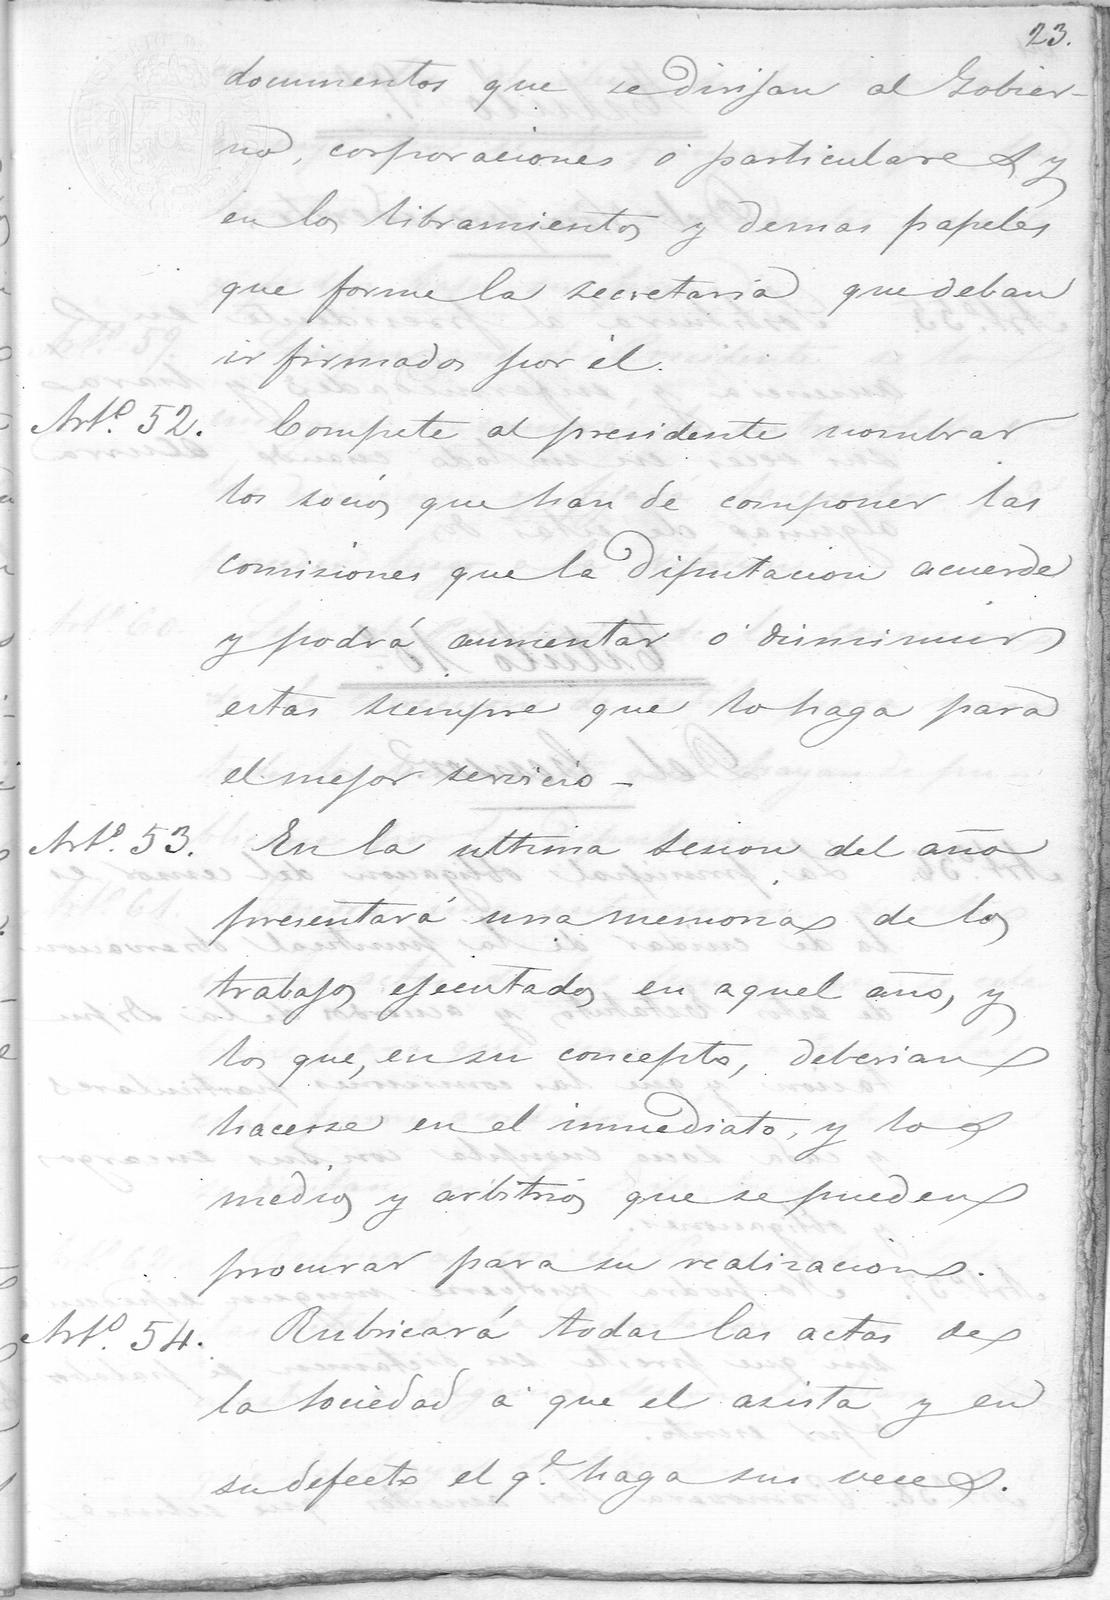 23.
documentos que se dirijan al Gobier-
no, corporaciones ó particulares y
en los libramientos y demas papeles
que forme la secretaria que deban
ir firmados por él.
Artº. 52. Compete al presidente nombrar
los socios que han de componer las
comisiones que la Diputacion acuerde
y podrá aumentar ó disminuir
estas siempre que lo haga para
el mejor servicio -
Artº. 53. En la ultima sesion del año
presentará una memoria de los
trabajos ejecutados en aquel año, y
los que, en su concepto, deberian
hacerse en el inmediato, y los
medios y arbitrios que se pueden
procurar para su realizacion.
Artº. 54. Rubricará todas las actas de
la Sociedad á que el asista y en
su defecto el qe. haga sus veces.